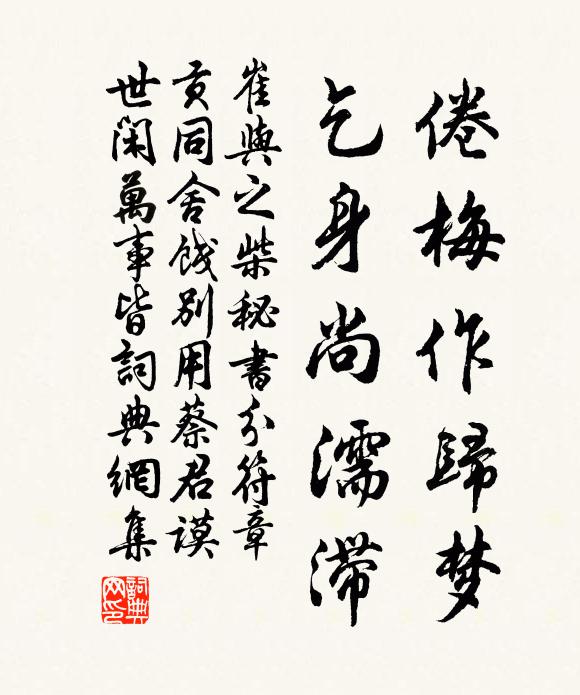 倦梅作歸梦
乞身尚濡滞
崔與之柴秘書分符章
贡同舍餞别用蔡君謨
世闲萬事皆詞典網集
詞典
网印